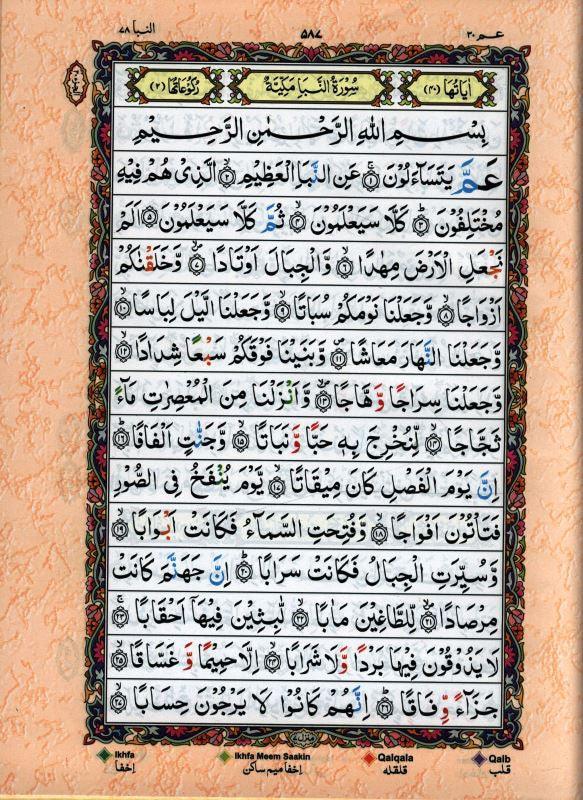 عم ٣٠
٥٨٧
النبا ٧٨
اٰيَاتُهَا (٤٠)
سُوْرَةُ النَّبَاِ مَكِّيَّةٌ
رُكُوْعَاتُهَا (٢)
بِسْمِ اللهِ الرَّحْمٰنِ الرَّحِيْمِ
عَمَّ يَتَسَآءَلُوْنَ ۝١ عَنِ النَّبَاِ الْعَظِيْمِ ۝٢ الَّذِىْ هُمْ فِيْهِ
مُخْتَلِفُوْنَ ۝٣ كَلَّا سَيَعْلَمُوْنَ ۝٤ ثُمَّ كَلَّا سَيَعْلَمُوْنَ ۝٥ اَلَمْ
نَجْعَلِ الْاَرْضَ مِهٰدًا ۝٦ وَّالْجِبَالَ اَوْتَادًا ۝٧ وَّخَلَقْنٰكُمْ
اَزْوَاجًا ۝٨ وَّجَعَلْنَا نَوْمَكُمْ سُبَاتًا ۝٩ وَّجَعَلْنَا الَّيْلَ لِبَاسًا ۝١٠
وَّجَعَلْنَا النَّهَارَ مَعَاشًا ۝١١ وَّبَنَيْنَا فَوْقَكُمْ سَبْعًا شِدَادًا ۝١٢
وَّجَعَلْنَا سِرَاجًا وَّهَّاجًا ۝١٣ وَّاَنْزَلْنَا مِنَ الْمُعْصِرٰتِ مَآءً
ثَجَّاجًا ۝١٤ لِّنُخْرِجَ بِهٖ حَبًّا وَّنَبَاتًا ۝١٥ وَّجَنّٰتٍ اَلْفَافًا ۝١٦
اِنَّ يَوْمَ الْفَصْلِ كَانَ مِيْقَاتًا ۝١٧ يَّوْمَ يُنْفَخُ فِى الصُّوْرِ
فَتَاْتُوْنَ اَفْوَاجًا ۝١٨ وَّفُتِحَتِ السَّمَآءُ فَكَانَتْ اَبْوَابًا ۝١٩
وَّسُيِّرَتِ الْجِبَالُ فَكَانَتْ سَرَابًا ۝٢٠ اِنَّ جَهَنَّمَ كَانَتْ
مِرْصَادًا ۝٢١ لِّلطَّاغِيْنَ مَاٰبًا ۝٢٢ لّٰبِثِيْنَ فِيْهَآ اَحْقَابًا ۝٢٣
لَا يَذُوْقُوْنَ فِيْهَا بَرْدًا وَّلَا شَرَابًا ۝٢٤ اِلَّا حَمِيْمًا وَّغَسَّاقًا ۝٢٥
جَزَآءً وِّفَاقًا ۝٢٦ اِنَّهُمْ كَانُوْا لَا يَرْجُوْنَ حِسَابًا ۝٢٧
Ikhfa
Ikhfa Meem Saakin
Qalqala
Qalb
اِخفا
اِخفا میم ساکن
قلقلہ
قلب